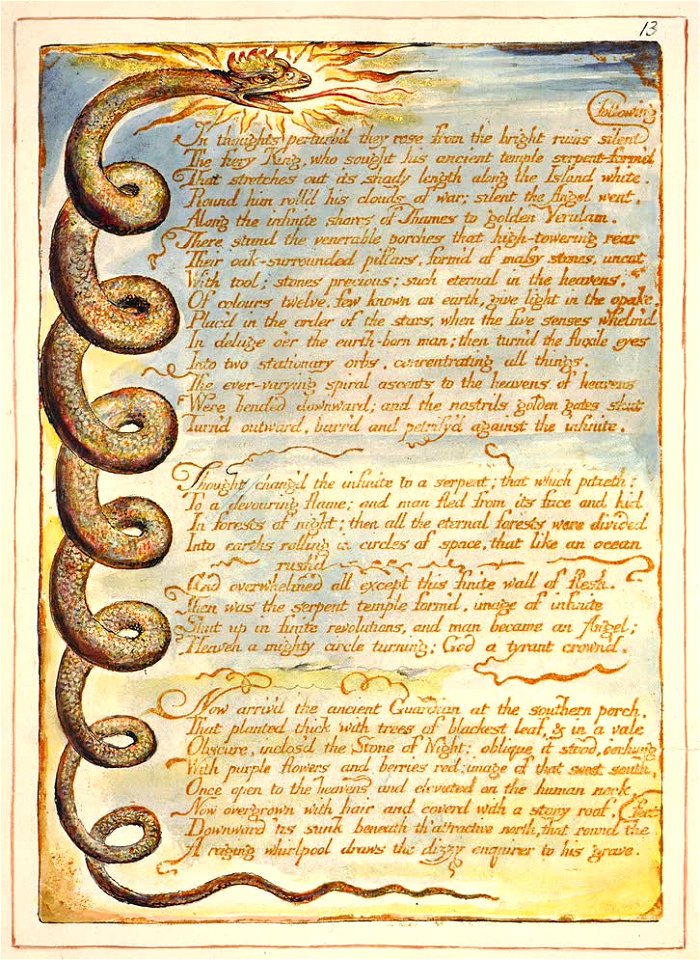 13
following
In thoughts perturb'd they rose from the bright ruins silent
The fiery King, who sought his ancient temple serpent-form'd
That stretches out its shady length along the Island white.
Round him roll'd his clouds of war; silent the Angel went,
Along the infinite shores of Thames to golden Verulam.
There stand the venerable porches that high-towering rear
Their oak-surrounded pillars, form'd of massy stones, uncut
With tool; stones precious; such eternal in the heavens,
Of colours twelve, few known on earth, give light in the opake,
Plac'd in the order of the stars, when the five senses whelm'd
In deluge o'er the earth-born man; then turn'd the fluxile eyes
Into two stationary orbs, concentrating all things.
The ever-varying spiral ascents to the heavens of heavens
Were bended downward; and the nostrils golden gates shut
Turn'd outward, barr'd and petrify'd against the infinite.
Thought chang'd the infinite to a serpent; that which pitieth:
To a devouring flame; and man fled from its face and hid
In forests of night; then all the eternal forests were divided
Into earths rolling in circles of space, that like an ocean
rush'd
And overwhelmed all except this finite wall of flesh.
Then was the serpent temple form'd, image of infinite
Shut up in finite revolutions, and man became an Angel;
Heaven a mighty circle turning; God a tyrant crown'd.
Now arriv'd the ancient Guardian at the southern porch,
That planted thick with trees of blackest leaf, & in a vale
Obscure, inclos'd the Stone of Night; oblique it stood, o'erhung
With purple flowers and berries red; image of that sweet south,
Once open to the heavens and elevated on the human neck,
Now overgrown with hair and coverd with a stony roof,
Downward 'tis sunk beneath th' attractive north, that round the feet
A raging whirlpool draws the dizzy enquirer to his grave.